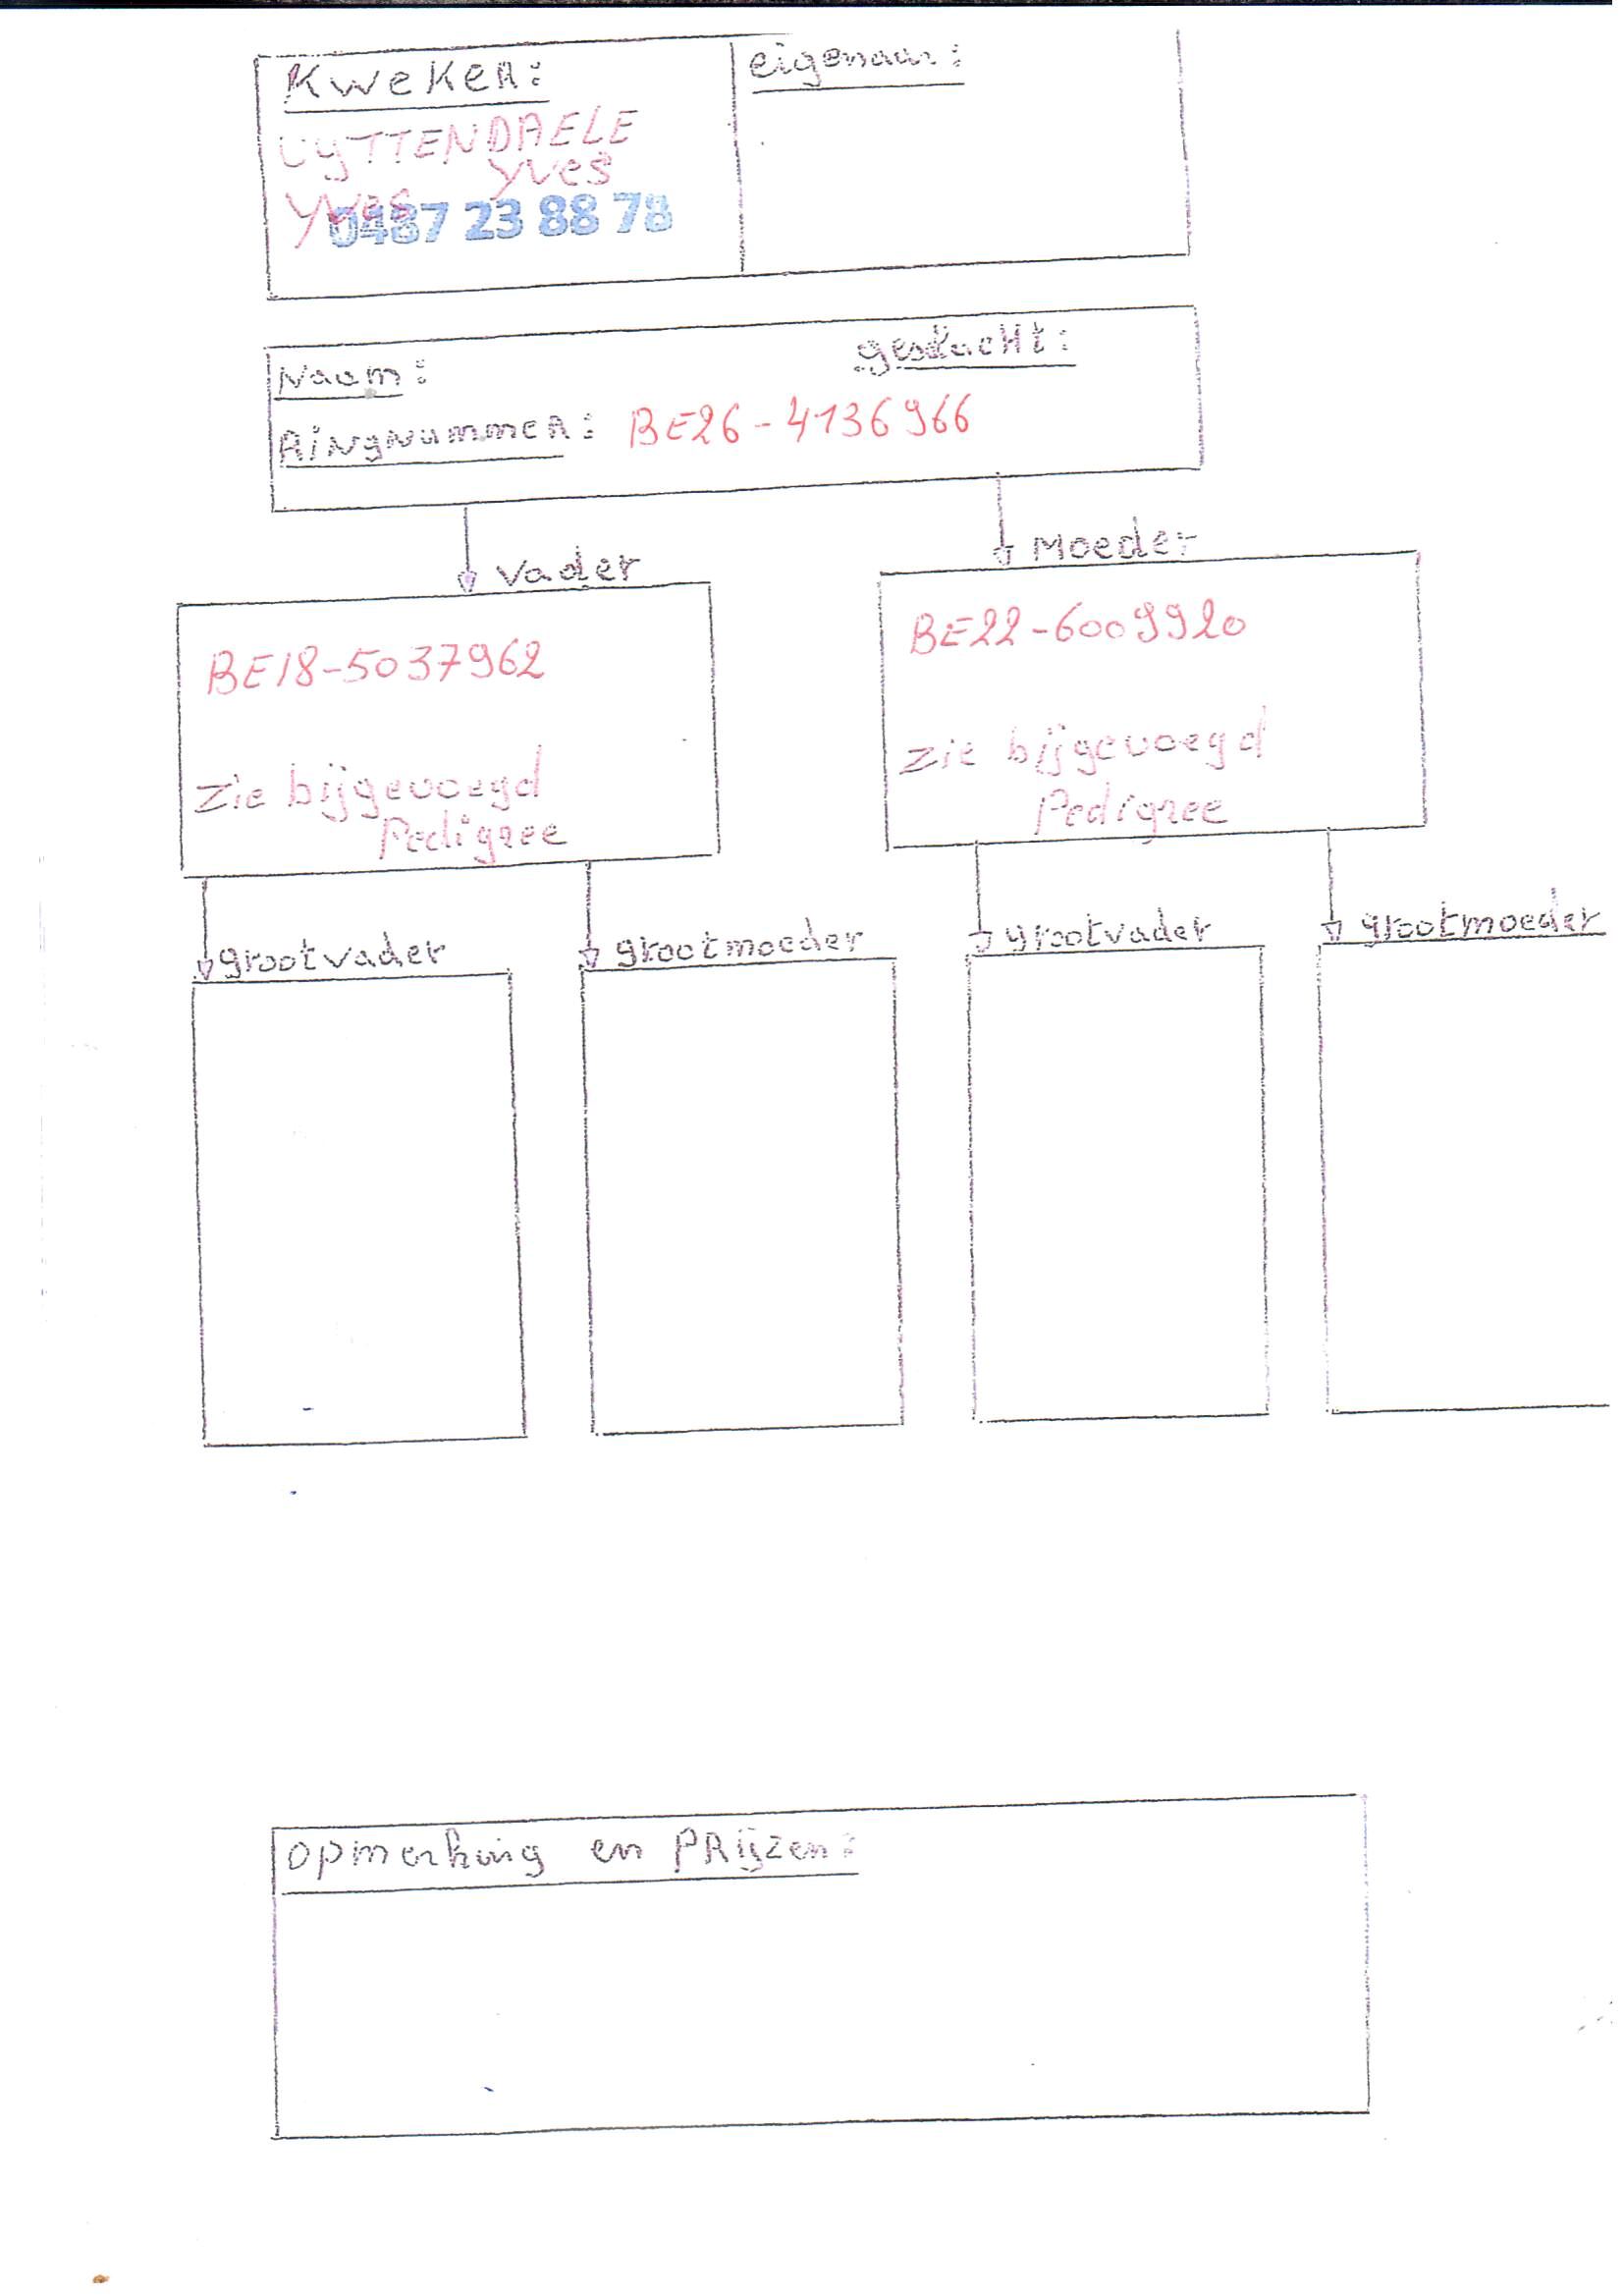 Kweker:
eigenaar:
UyTTENDAELE
yves
yves
0487 23 88 78
Naam:
geslacht:
Ringnummer: BE26-4136966
Vader
Moeder
BE18-5037962
BE22-6009920
Zie bijgevoegd
Pedigree
Zie bijgevoegd
Pedigree
grootvader
grootmoeder
grootvader
grootmoeder
opmerking en PRijzen: